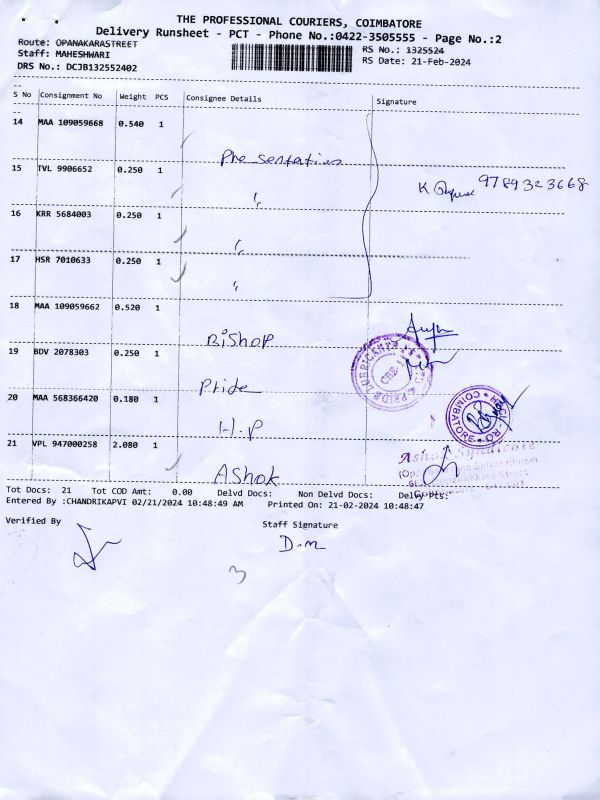 THE PROFESSIONAL COURIERS, COIMBATORE
Delivery Runsheet - PCT - Phone No.:0422-3505555 - Page No.:2
Route: OPANAKARASTREET
RS No.: 1325524
Staff: MAHESHWARI
RS Date: 21-Feb-2024
DRS No.: DCJB132552402
S No Consignment No Weight PCS Consignee Details Signature
14 MAA 109059668 0.540 1
15 TVL 9906652 0.250 1
K 9789323668
16 KRR 5684003 0.250 1
17 HSR 7010633 0.250 1
18 MAA 109059662 0.520 1
Bishop
19 BDV 2078303 0.250 1
Pride
20 MAA 568366420 0.180 1
H.P
21 VPL 947000258 2.080 1
Ashok
PRIDE LUBRICANTS
COIMBATORE
Ashok Syndicate
Tot Docs: 21 Tot COD Amt: 0.00 Delvd Docs: Non Delvd Docs: Delvy Pts:
Entered By :CHANDRIKAPVI 02/21/2024 10:48:49 AM Printed On: 21-02-2024 10:48:47
Verified By
Staff Signature
D.m
3